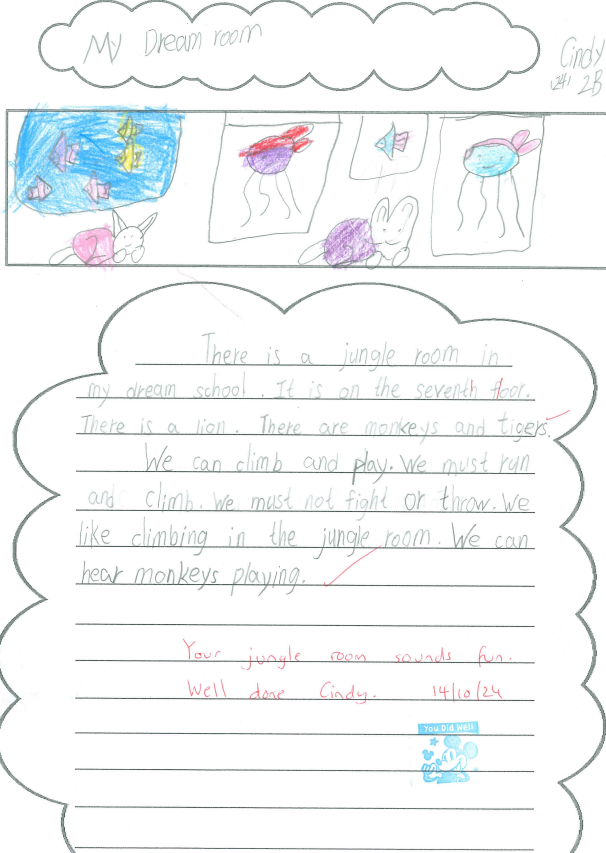 My Dream room
Cindy
(24) 2B
There is a jungle room in
my dream school. It is on the seventh floor.
There is a lion. There are monkeys and tigers.
We can climb and play. We must run
and climb. We must not fight or throw. We
like climbing in the jungle room. We can
hear monkeys playing.
Your jungle room sounds fun.
Well done Cindy. 14/10/24
You Did Well